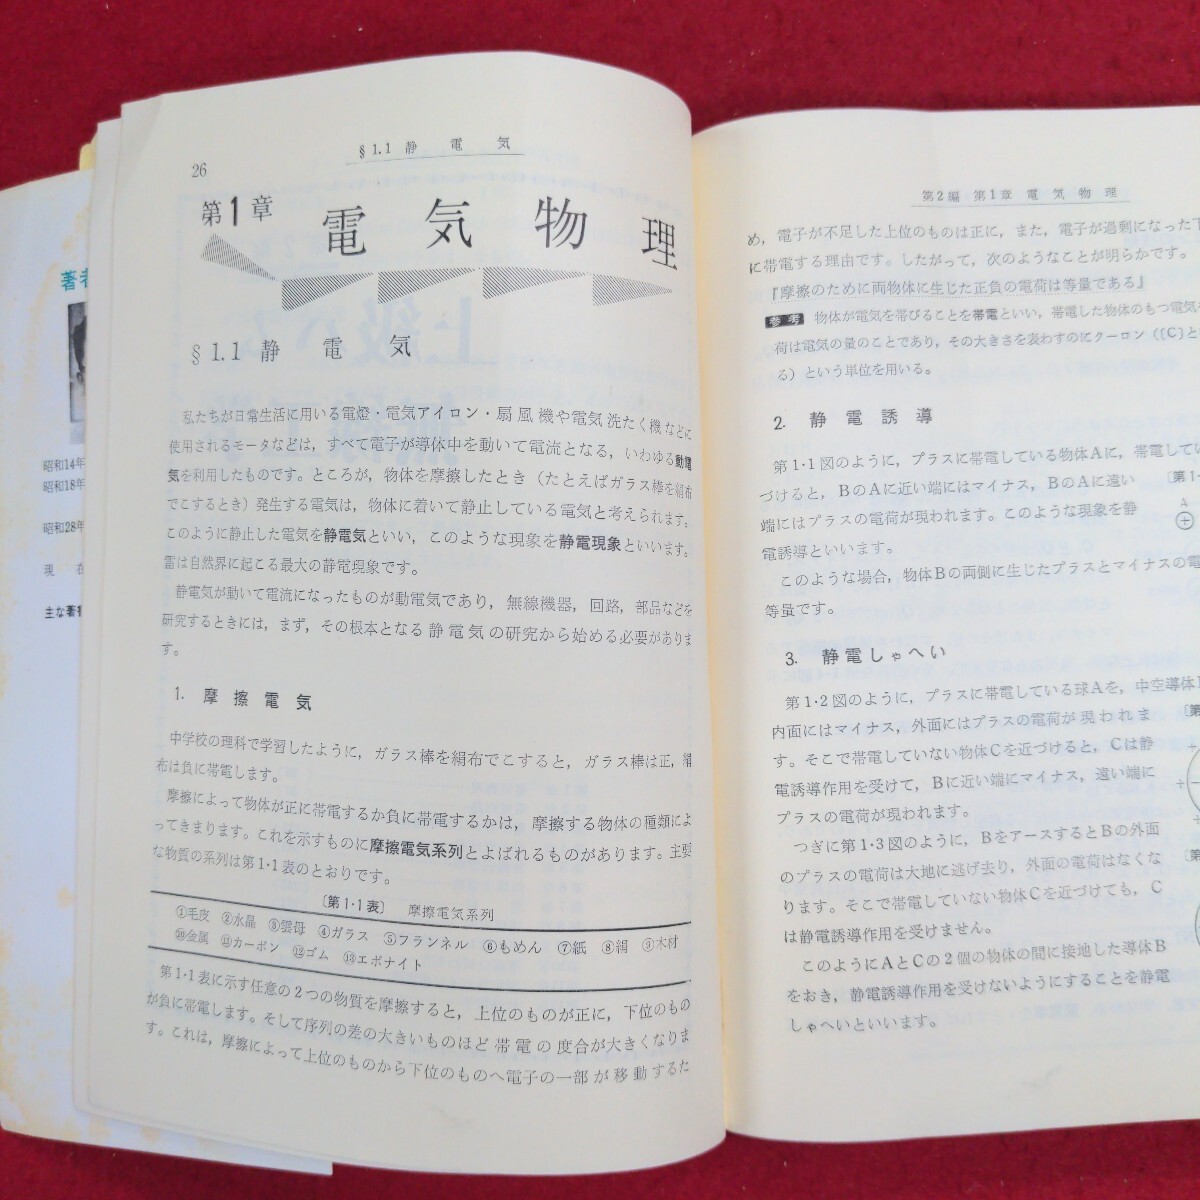 著者
昭和14年
昭和18年
昭和28年
現 在
主な著書
26
§1.1 静電気
第1章 電気物理
§1.1 静電気
私たちが日常生活に用いる電燈・電気アイロン・扇風機や電気洗たく機などに
使用されるモータなどは，すべて電子が導体中を動いて電流となる，いわゆる動電
気を利用したものです。ところが，物体を摩擦したとき（たとえばガラス棒を絹布
でこするとき）発生する電気は，物体に着いて静止している電気と考えられます。
このように静止した電気を静電気といい，このような現象を静電現象といいます。
雷は自然界に起こる最大の静電現象です。
静電気が動いて電流になったものが動電気であり，無線機器，回路，部品などを
研究するときには，まず，その根本となる静電気の研究から始める必要がありま
す。
1. 摩擦電気
中学校の理科で学習したように，ガラス棒を絹布でこすると，ガラス棒は正，絹
布は負に帯電します。
摩擦によって物体が正に帯電するか負に帯電するかは，摩擦する物体の種類によ
ってきまります。これを示すものに摩擦電気系列とよばれるものがあります。主要
な物質の系列は第1・1表のとおりです。
〔第1・1表〕 摩擦電気系列
①毛皮 ②水晶 ③雲母 ④ガラス ⑤フランネル ⑥もめん ⑦紙 ⑧絹 ⑨木材
⑩金属 ⑪カーボン ⑫ゴム ⑬エボナイト
第1・1表に示す任意の2つの物質を摩擦すると，上位のものが正に，下位のもの
が負に帯電します。そして序列の差の大きいものほど帯電の度合が大きくなりま
す。これは，摩擦によって上位のものから下位のものへ電子の一部が移動するた
第2編 第1章 電気物理
め，電子が不足した上位のものは正に，また，電子が過剰になった下
に帯電する理由です。したがって，次のようなことが明らかです。
『摩擦のために両物体に生じた正負の電荷は等量である』
参考 物体が電気を帯びることを帯電といい，帯電した物体のもつ電気
荷は電気の量のことであり，その大きさを表わすのにクーロン（〔C〕と
る）という単位を用いる。
2. 静電誘導
第1・1図のように，プラスに帯電している物体Aに，帯電してい
づけると，BのAに近い端にはマイナス，BのAに遠い
〔第1・
端にはプラスの電荷が現われます。このような現象を静
A
電誘導といいます。
このような場合，物体Bの両側に生じたプラスとマイナスの電
等量です。
3. 静電しゃへい
第1・2図のように，プラスに帯電している球Aを，中空導体
内面にはマイナス，外面にはプラスの電荷が現われま
〔第
す。そこで帯電していない物体Cを近づけると，Cは静
電誘導作用を受けて，Bに近い端にマイナス，遠い端に
プラスの電荷が現われます。
つぎに第1・3図のように，BをアースするとBの外面
のプラスの電荷は大地に逃げ去り，外面の電荷はなくな
〔第
ります。そこで帯電していない物体Cを近づけても，C
は静電誘導作用を受けません。
このようにAとCの2個の物体の間に接地した導体B
をおき，静電誘導作用を受けないようにすることを静電
しゃへいといいます。